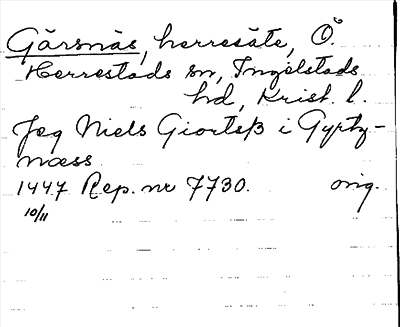 Gärsnäs, herresäte, Ö.
Herrestads sn, Ingelstads
hd, Krist. l.
Jeg Niels Giortsß i Gyrtz-
næss
1447 Rep. nr 7730. orig.
10/11